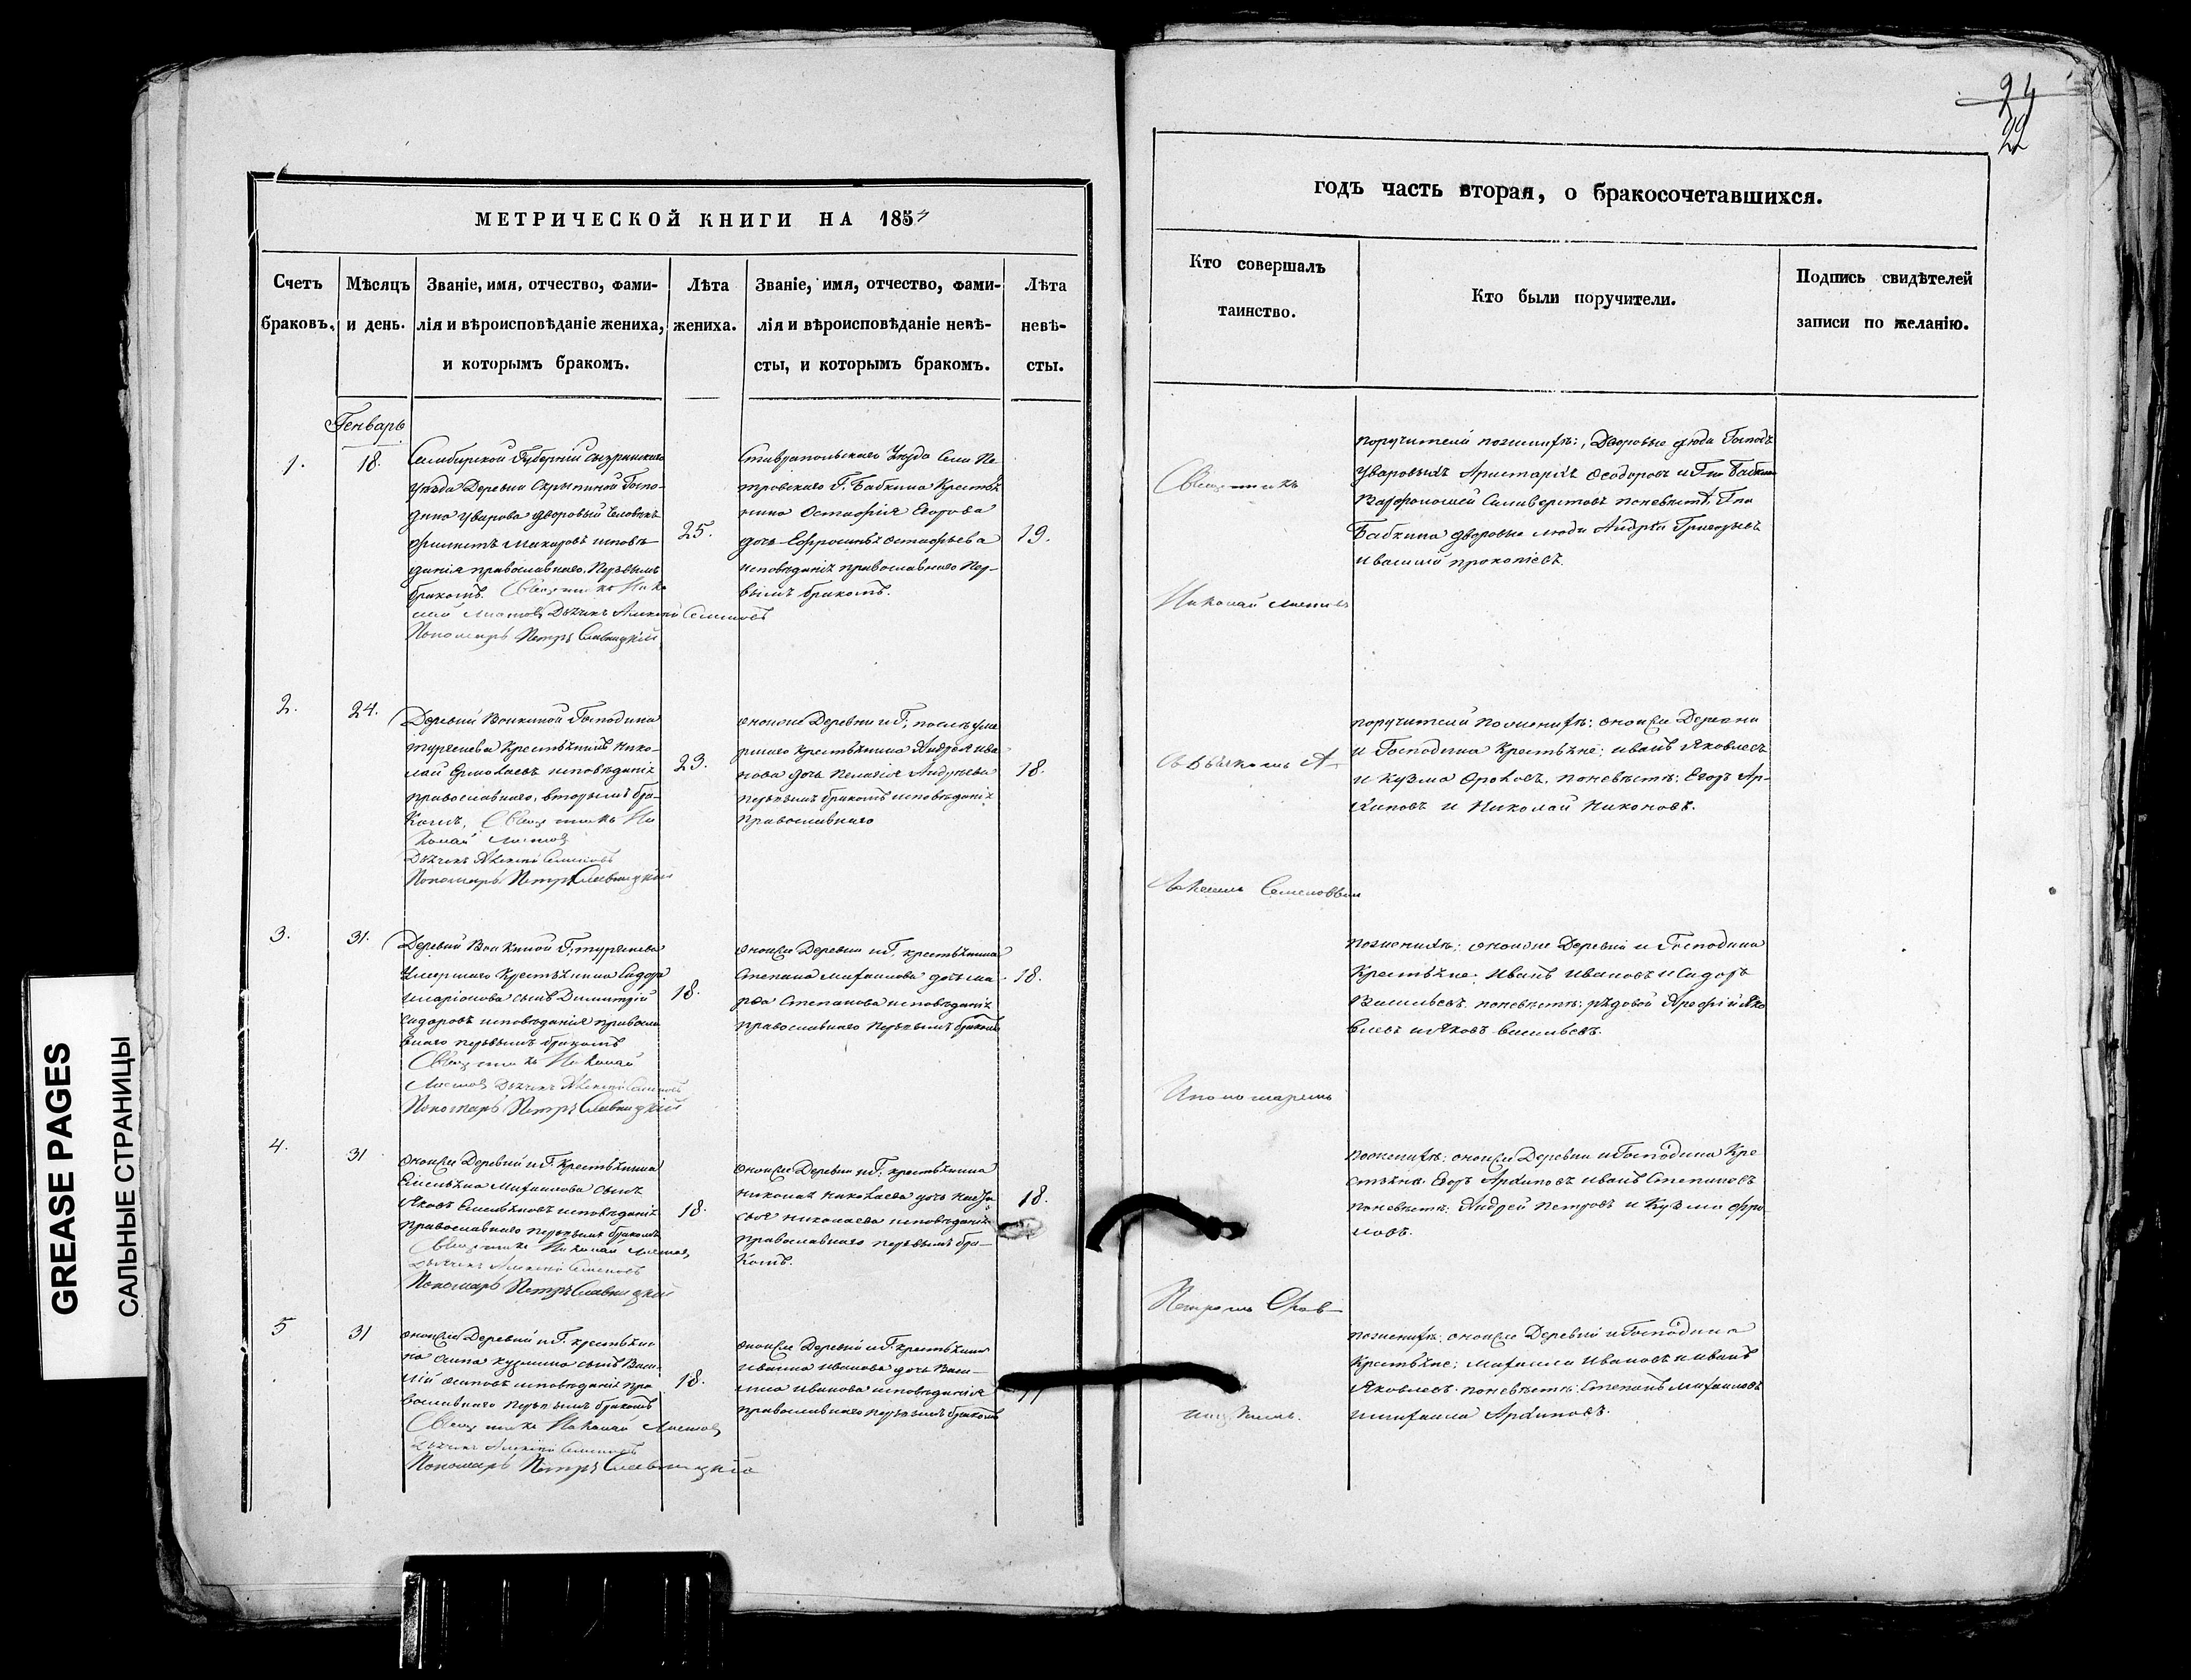 24
22
МЕТРИЧЕСКОЙ КНИГИ НА 1854
годъ часть вторая, о бракосочетавшихся.
Счетъ браковъ.
Мѣсяцъ и день.
Званіе, имя, отчество, фами-
лія и вѣроисповѣданіе жениха,
и которымъ бракомъ.
Лѣта жениха.
Званіе, имя, отчество, фами-
лія и вѣроисповѣданіе невѣ-
сты, и которымъ бракомъ.
Лѣта невѣ-
сты.
Кто совершалъ
таинство.
Кто были поручители.
Подпись свидѣтелей
записи по желанію.
Генварь
1.
18.
Симбирской Губерніи Сызранскаго
уѣзда Деревни Скрыпиной Госпо-
дина Уварова дворовый человѣкъ
Филиппъ Макаровъ исповѣ-
данія православнаго, Первымъ
бракомъ. Священникъ Нико
лай Листовъ Дьячекъ Алексей Семеновъ
Пономарь Петръ Славницкій
25.
Ставропольскаго Уезда Села Пе-
тровскаго Г. Бабкина Крестья
нина Остафія Егорова
дочь Ефросинья Остафьева
исповеданія православнаго Пер-
вымъ бракомъ.
19.
Священникъ
Николай Листовъ
поручители по женихѣ: Дворовые люди Господъ
Уваровыхъ Аристархъ Феодоровъ и Г-на Бабкина
Варфоломей Силиверстовъ по невѣстѣ, Г-на
Бабкина дворовые люди Андрѣй Григорьевъ
и Василій Прокопіевъ.
2.
24.
Деревни Воткиной Господина
Тургенева Крестьянинъ Нико-
лай Ермолаевъ исповѣданія
православнаго, вторымъ бра-
комъ. Священникъ Ни
колай Листовъ
Дьячекъ Алексей Семеновъ
Пономарь Петръ Славницкій
23.
оной же Деревни и Г. после уме
ршаго крестьянина Андрея Ива
нова дочь Пелагія Андреева
первымъ бракомъ исповеданія
Православнаго
18.
съ Дьячкомъ А-
лексѣемъ Семеновымъ
поручители по женихѣ: оной же Деревни
и Господина Крестьяне: Иванъ Яковлевъ
и Кузма Фроловъ. по невѣстѣ: Егоръ Ар-
хиповъ и Николай Никоновъ.
3.
31.
Деревни Воткиной Г. Тургенева
Умершаго Крестьянина Сидора
Иларіонова сынъ Димитрій
Сидоровъ исповѣданія правосла
внаго первымъ бракомъ
Священникъ Николай
Листовъ Дьячекъ Алексей Семеновъ
Пономарь Петръ Славницкій
18.
оной же Деревни и Г. крестьянина
Степана Михаилова дочь Ма-
рфа Степанова исповеданія
православнаго первымъ бракомъ
18.
И пономаремъ
по женихѣ: оной же Деревни и Господина
Крестьяне: Иванъ Ивановъ и Сидоръ
Васильевъ. по невѣстѣ: рядовой Арефій Яко
влевъ и Яковъ Васильевъ.
4.
31
оной же Деревни и Г. Крестьянина
Емельяна Михаилова сынъ
Яковъ Емельяновъ исповѣданія
православнаго первымъ бракомъ
Священникъ Николай Листовъ
Дьячекъ Алексей Семеновъ
Пономарь Петръ Славницкій
18.
оной же Деревни и Г. крестьянина
Николая Николаева дочь Наста
сья Николаева исповеданія
православнаго первымъ бра-
комъ.
18.
Петромъ Слав-
ницкимъ.
по женихѣ: оной же Деревни и Господина Кре
стьяне: Егоръ Архиповъ Иванъ Степановъ
по невѣстѣ: Андрей Петровъ и Кузма Фро
ловъ.
5
31
оной же Деревни и Г. крестьяни
на Осипа Кузмина сынъ Васи-
лій Осиповъ исповѣданія пра
вославнаго первымъ бракомъ
Священникъ Николай Листовъ
Дьячекъ Алексей Семеновъ
Пономарь Петръ Славницкій
18.
оной же Деревни и Г. крестьянина
Ивана Иванова дочь Васи-
лиса Иванова исповѣданія
православнаго первымъ бракомъ
по женихѣ: оной же Деревни и Господина
Крестьяне; Михаила Ивановъ и Иванъ
Яковлевъ. по невѣстѣ: Степанъ Михаиловъ
и Михаила Архиповъ.
GREASE PAGES
САЛЬНЫЕ СТРАНИЦЫ